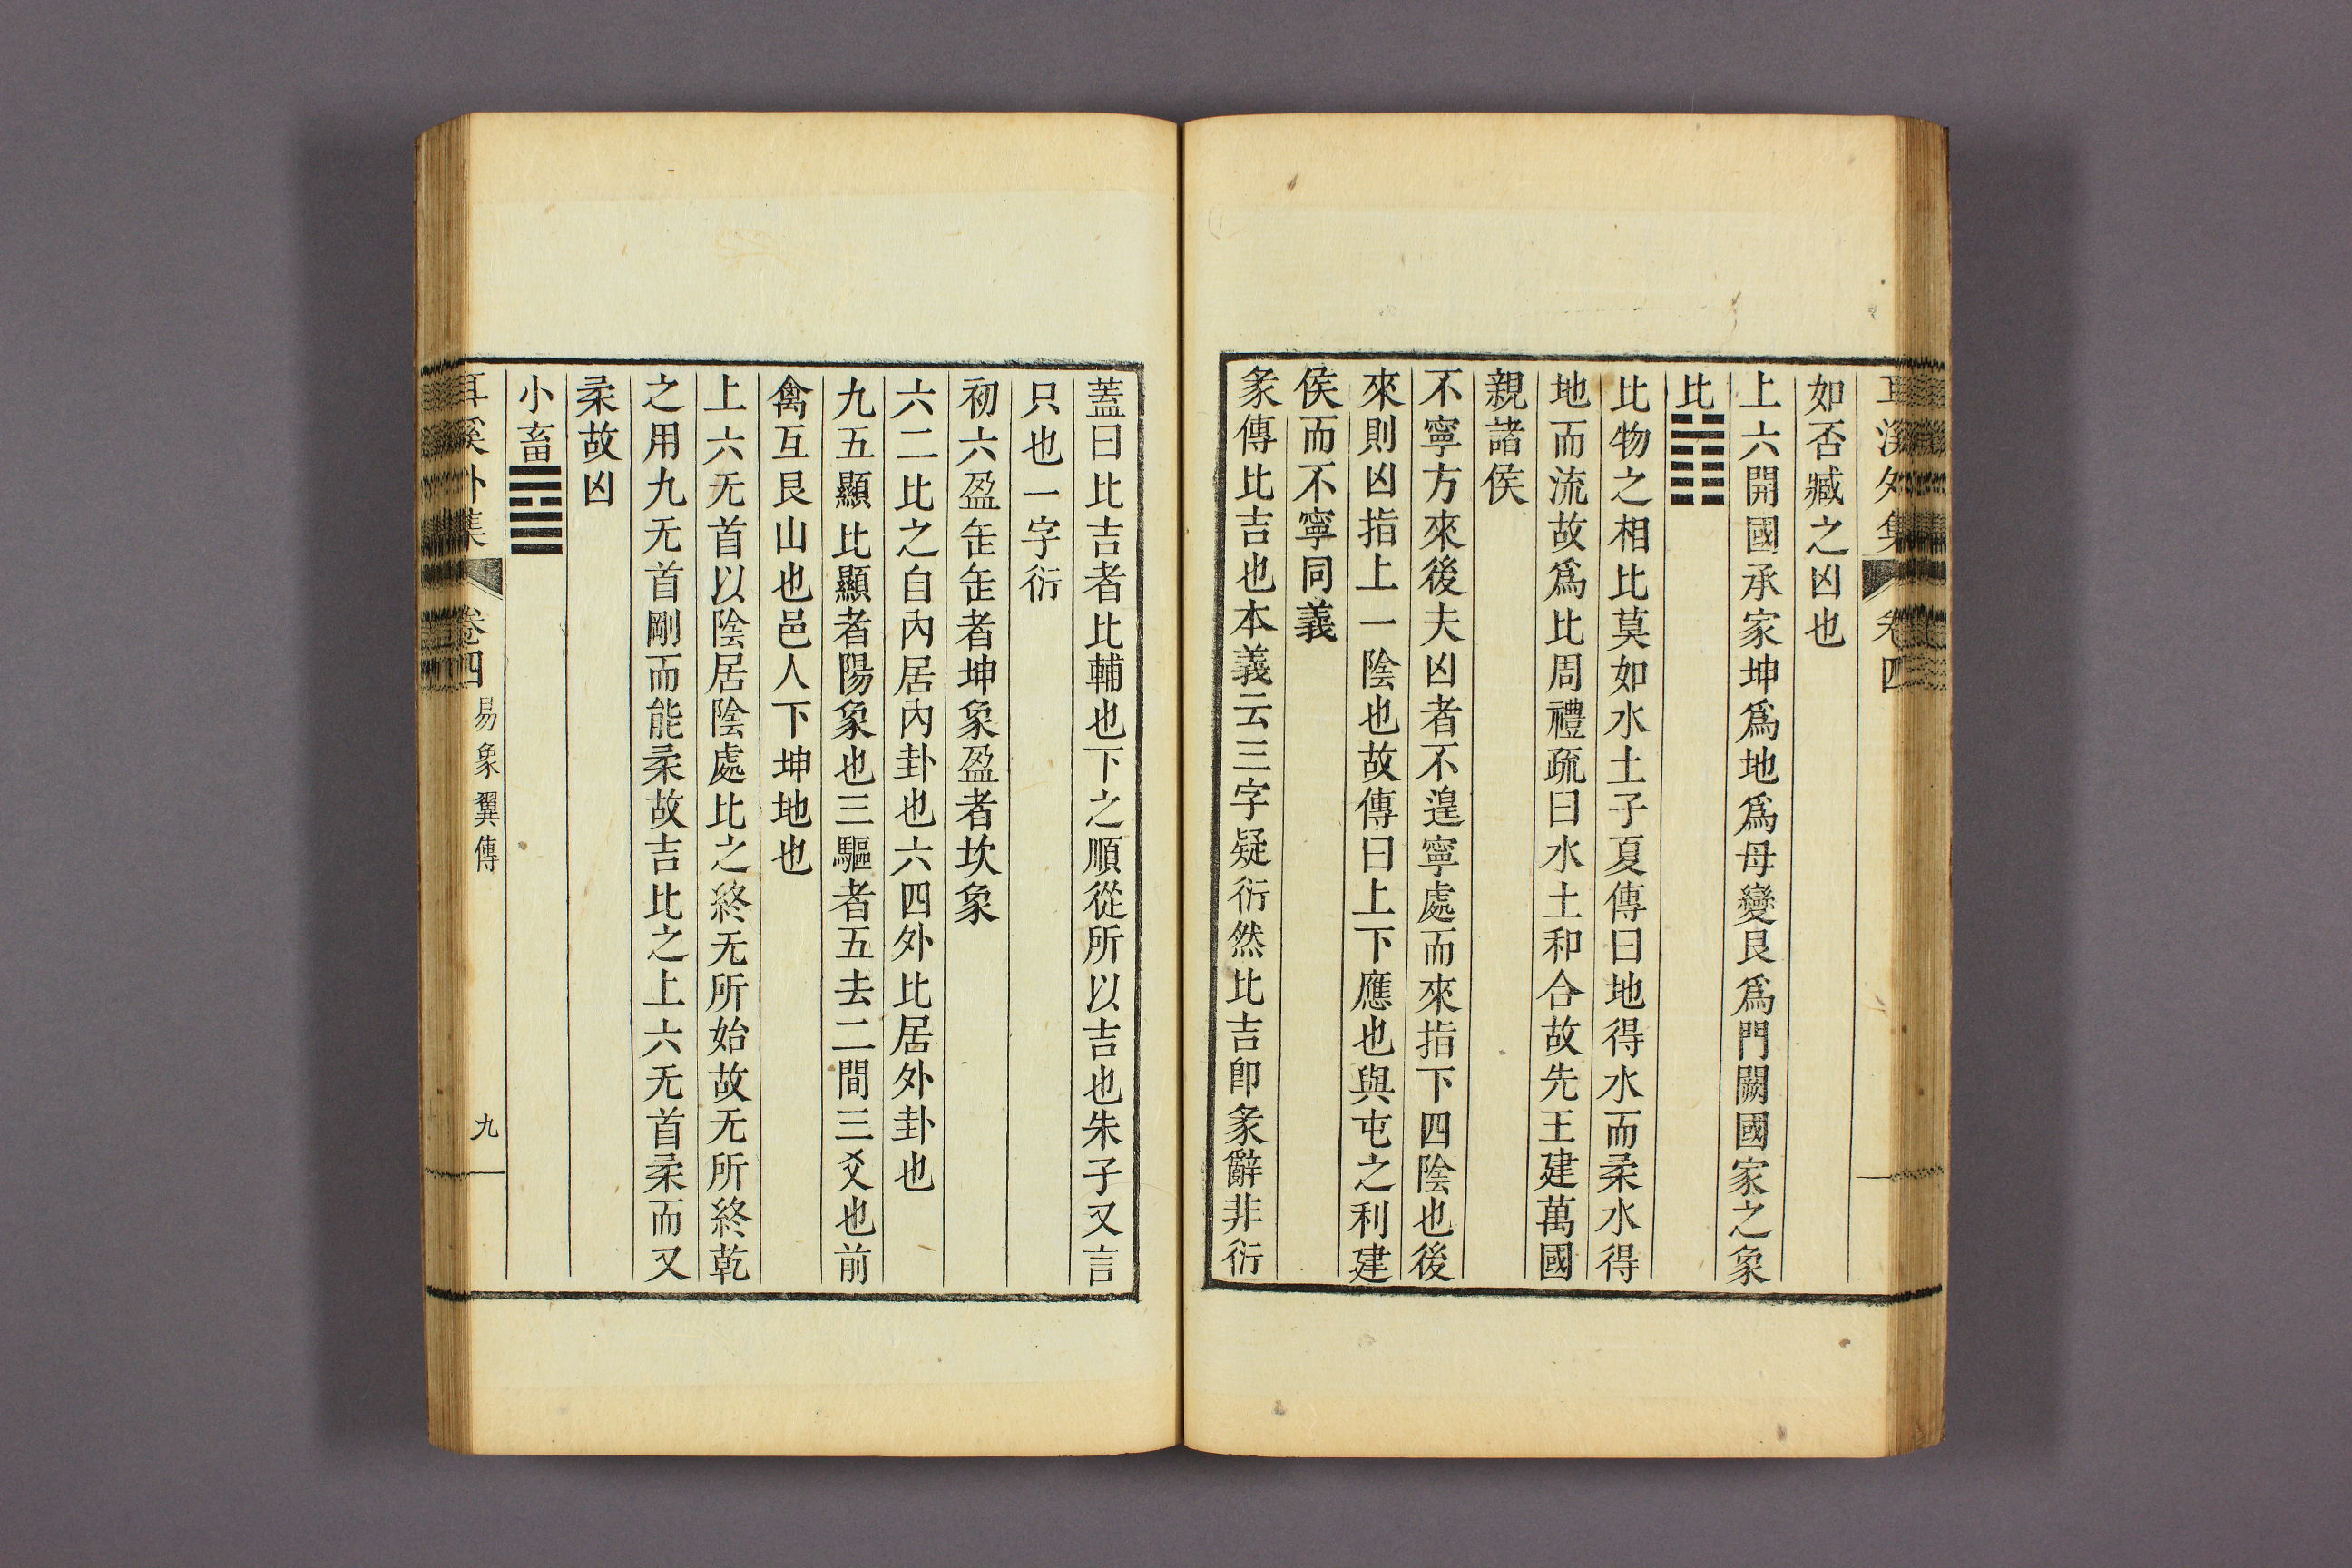 耳溪外集 卷四
如否臧之凶也
上六開國承家坤爲地爲母變艮爲門闕國家之象
比䷇
比物之相比莫如水土子夏傳曰地得水而柔水得
地而流故爲比周禮疏曰水土和合故先王建萬國
親諸侯
不寧方來後夫凶者不遑寧處而來指下四陰也後
來則凶指上一陰也故傳曰上下應也與屯之利建
侯而不寧同義
彖傳比吉也本義云三字疑衍然比吉卽彖辭非衍
蓋曰比吉者比輔也下之順從所以吉也朱子又言
只也一字衍
初六盈缶缶者坤象盈者坎象
六二比之自內居內卦也六四外比居外卦也
九五顯比顯者陽象也三驅者五去二間三爻也前
禽互艮山也邑人下坤地也
上六无首以陰居陰處比之終无所始故无所終乾
之用九无首剛而能柔故吉比之上六无首柔而又
柔故凶
小畜䷈
耳溪外集 卷四 易象翼傳 九